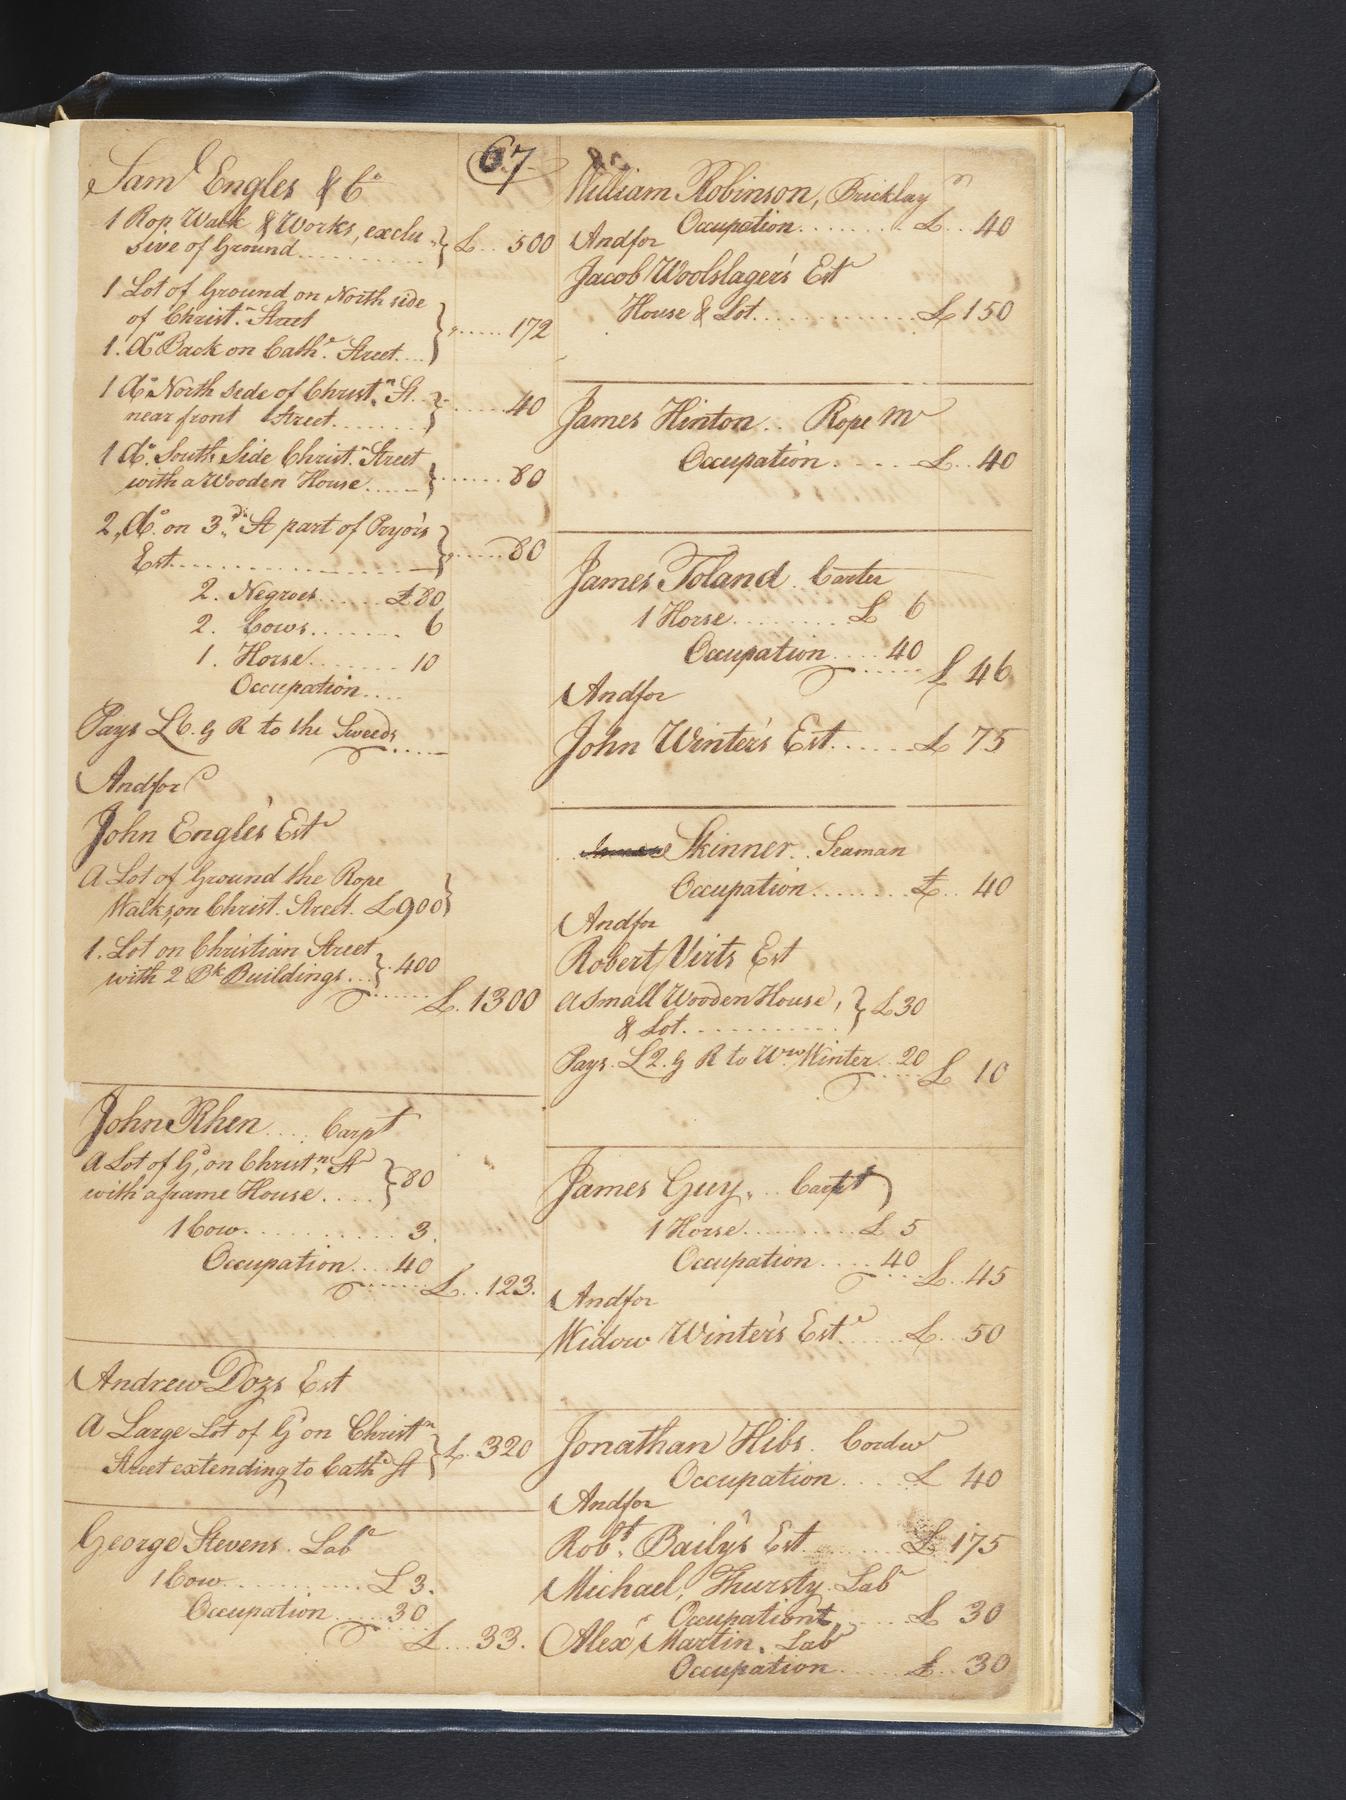 67
Saml Engles & Co
1 Rope Walk & Works, exclu
sive of Ground .......... £ .. 500
1 Lot of Ground on North side
of Christn Street
1. Do Back on Cathe Street.... } " ...... 172
1 Do North Side of Christn St.
near front Street........ } ....... 40
1 Do South Side Christn Street
with a Wooden House..... } ....... 80
2, Do on 3d St part of Pryor's
Est................ } " ..... 80
2. Negroes ...... £80
2. Cows........ 6
1. Horse........ 10
Occupation....
Pays £6. G R to the Sweeds
And for
John Engles's Este
A Lot of Ground the Rope
Walks, on Christ. Street. £900 }
1. Lot on Christian Street
with 2 Bk Buildings... } . 400
£. 1300
John Rhen.... Carpt
A Lot of Gd, on Christn St
with a frame House.... } 80
1 Cow........... 3.
Occupation.... 40
£... 123.
Andrew Dozs Est
A Large Lot of Gd on Christn
Street extending to Cathe St } £. 320
George Stevens. Labr
1 Cow............ £ 3.
Occupation..... 30
£.... 33.
William Robinson, Bricklayr
Occupation.......... £.. 40
And for
Jacob Woolslager's Este
House & Lot............... £ 150
James Hinton... Rope Mr
Occupation..... £.. 40
James Toland. Carter
1 Horse.......... £ 6
Occupation.... 40
£ 46
And for
John Winter's Est...... £ 75
Skinner.. Seaman
Occupation........ £.. 40
And for
Robert Virts Est
A Small Wooden House,
& Lot............ } £30
Pays. £2. G R to Ww Winter.. 20 £ 10
James Guy,... Carpt
1 Horse............ £ 5
Occupation..... 40
£.. 45
And for
Widow Winter's Este...... £.. 50
Jonathan Hibs. Cordwr
Occupation.... £ 40
And for
Robt. Baily's Est....... £ 175
Michael, Thursty. Labr
Occupation..... £ 30
Alexr Martin. Labr
Occupation...... £.. 30